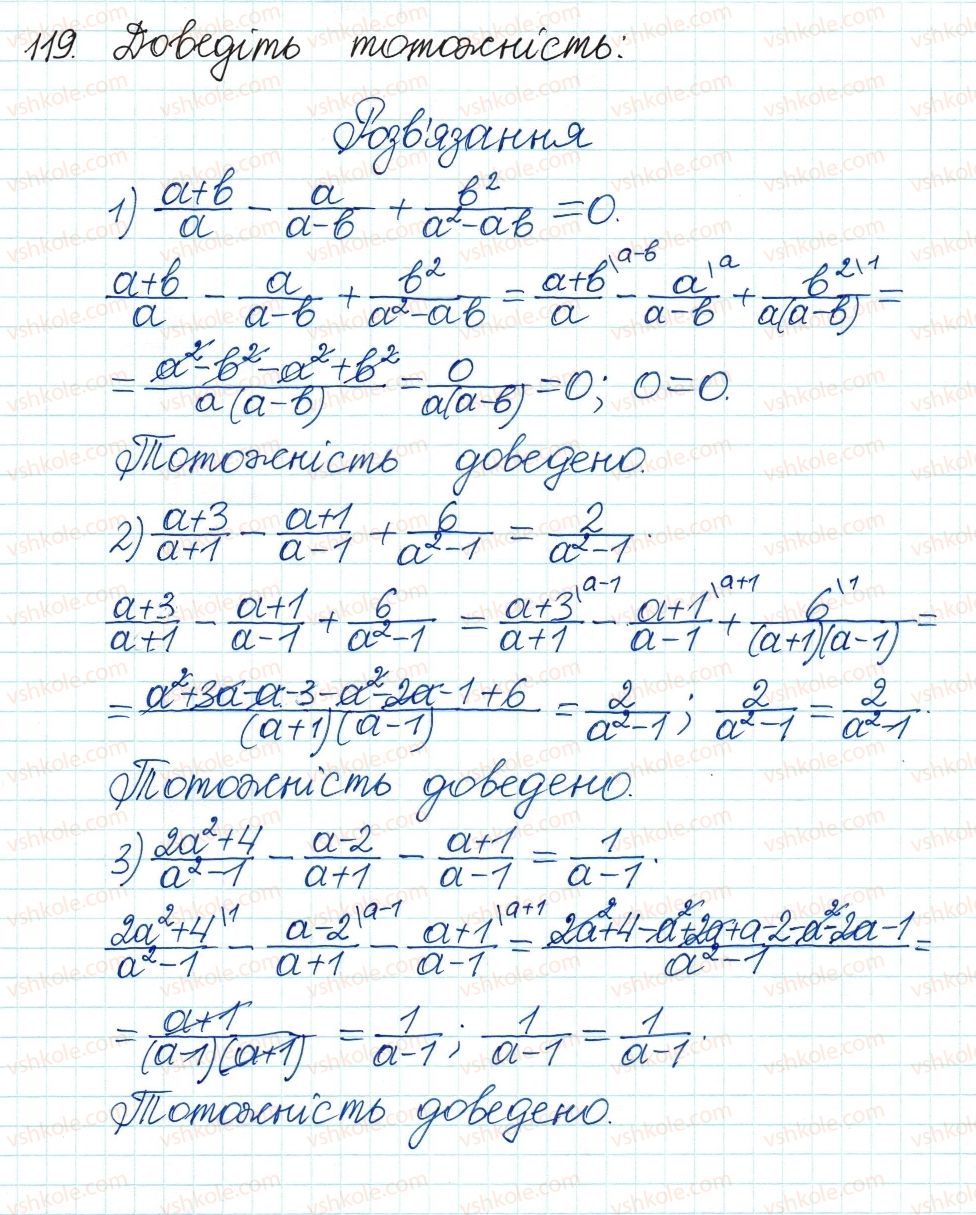 119. Доведіть тотожність:
Розв'язання
1) (a+b)/a − a/(a−b) + b²/(a²−ab) = 0.
(a+b)/a − a/(a−b) + b²/(a²−ab) = (a+b)/a \a−b − a/(a−b) \a + b²/(a(a−b)) \1 =
= (a²−b²−a²+b²)/(a(a−b)) = 0/(a(a−b)) = 0; 0=0.
Тотожність доведено.
2) (a+3)/(a+1) − (a+1)/(a−1) + 6/(a²−1) = 2/(a²−1).
(a+3)/(a+1) − (a+1)/(a−1) + 6/(a²−1) = (a+3)/(a+1) \a−1 − (a+1)/(a−1) \a+1 + 6/((a+1)(a−1)) \1 =
= (a²+3a−a−3−a²−2a−1+6)/((a+1)(a−1)) = 2/(a²−1); 2/(a²−1) = 2/(a²−1).
Тотожність доведено.
3) (2a²+4)/(a²−1) − (a−2)/(a+1) − (a+1)/(a−1) = 1/(a−1).
(2a²+4)/(a²−1) \1 − (a−2)/(a+1) \a−1 − (a+1)/(a−1) \a+1 = (2a²+4−a²+2a+a−2−a²−2a−1)/(a²−1) =
= (a+1)/((a−1)(a+1)) = 1/(a−1); 1/(a−1) = 1/(a−1).
Тотожність доведено.